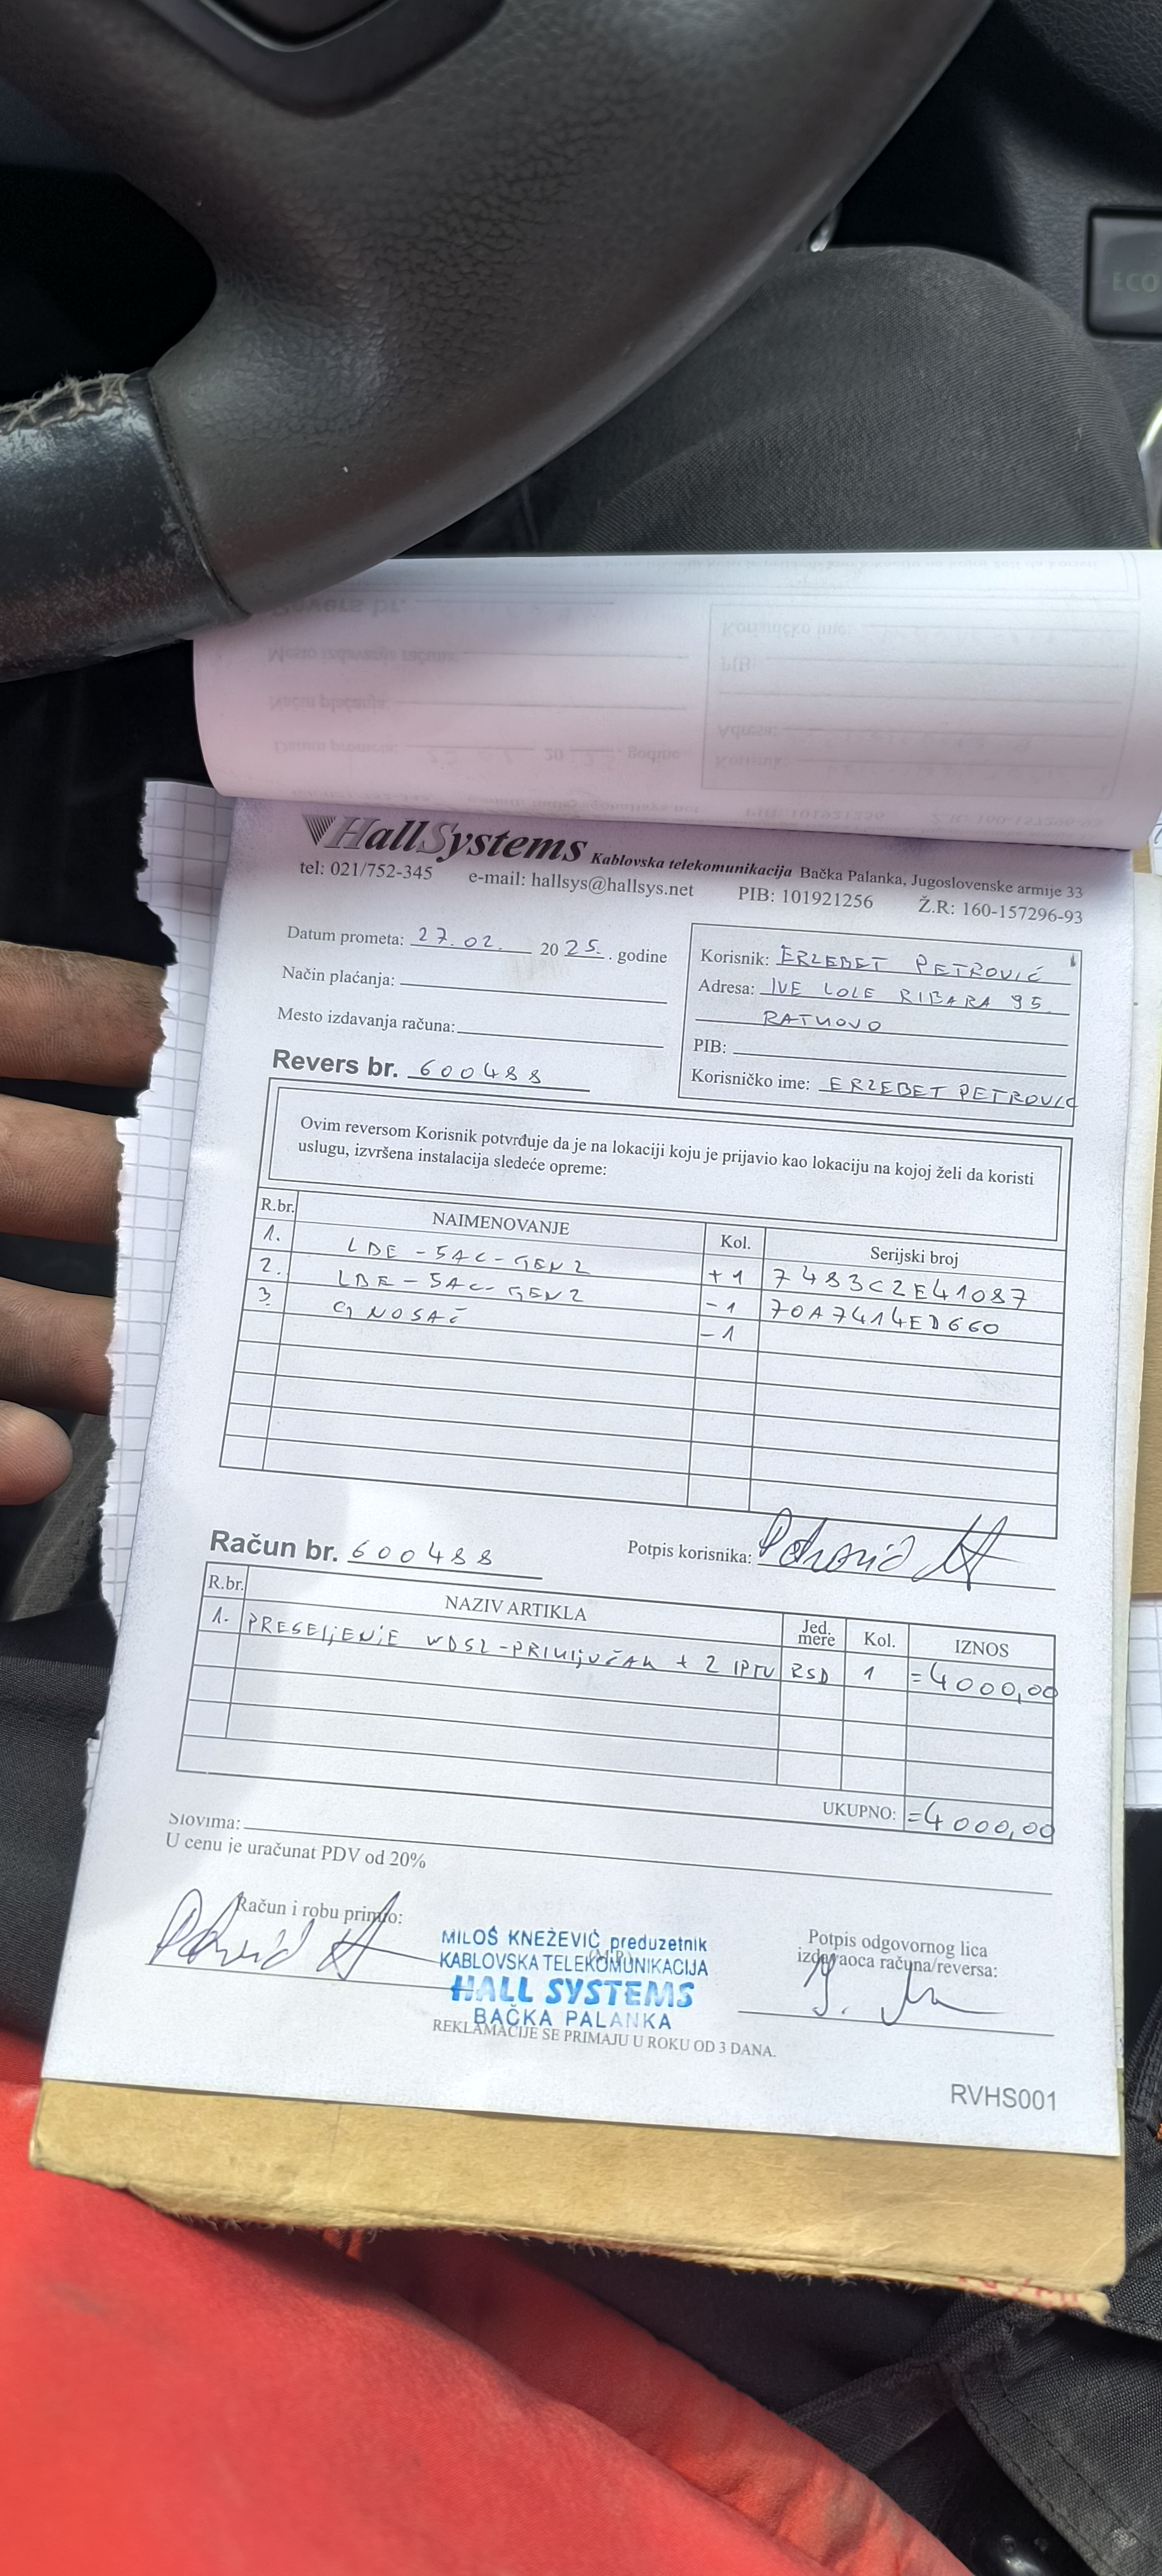 HallSystems Kablovska telekomunikacija Bačka Palanka, Jugoslovenske armije 33
tel: 021/752-345 e-mail: hallsys@hallsys.net PIB: 101921256 Ž.R: 160-157296-93
Datum prometa: 27.02. 2025. godine
Način plaćanja:
Mesto izdavanja računa:
Revers br. 600488
Korisnik: ERZEBET PETROVIĆ
Adresa: IVE LOLE RIBARA 95
RATKOVO
PIB:
Korisničko ime: ERZEBET PETROVIĆ
Ovim reversom Korisnik potvrđuje da je na lokaciji koju je prijavio kao lokaciju na kojoj želi da koristi
uslugu, izvršena instalacija sledeće opreme:
R.br. NAIMENOVANJE Kol. Serijski broj
1. LDE-5AC-GEN2 +1 7483C2E41087
2. LDE-5AC-GEN2 -1 70A7414ED660
3. NOSAČ -1
Potpis korisnika:
Račun br. 600488
R.br. NAZIV ARTIKLA Jed. mere Kol. IZNOS
1. PRESELjENjE VDSL-PRIKLjUČAK + 2 IPTV RSD 1 =4000,00
UKUPNO: =4000,00
Slovima:
U cenu je uračunat PDV od 20%
Račun i robu primio:
MILOŠ KNEŽEVIĆ preduzetnik
KABLOVSKA TELEKOMUNIKACIJA
HALL SYSTEMS
BAČKA PALANKA
Potpis odgovornog lica
izdavaoca računa/reversa:
REKLAMACIJE SE PRIMAJU U ROKU OD 3 DANA.
RVHS001
ECO